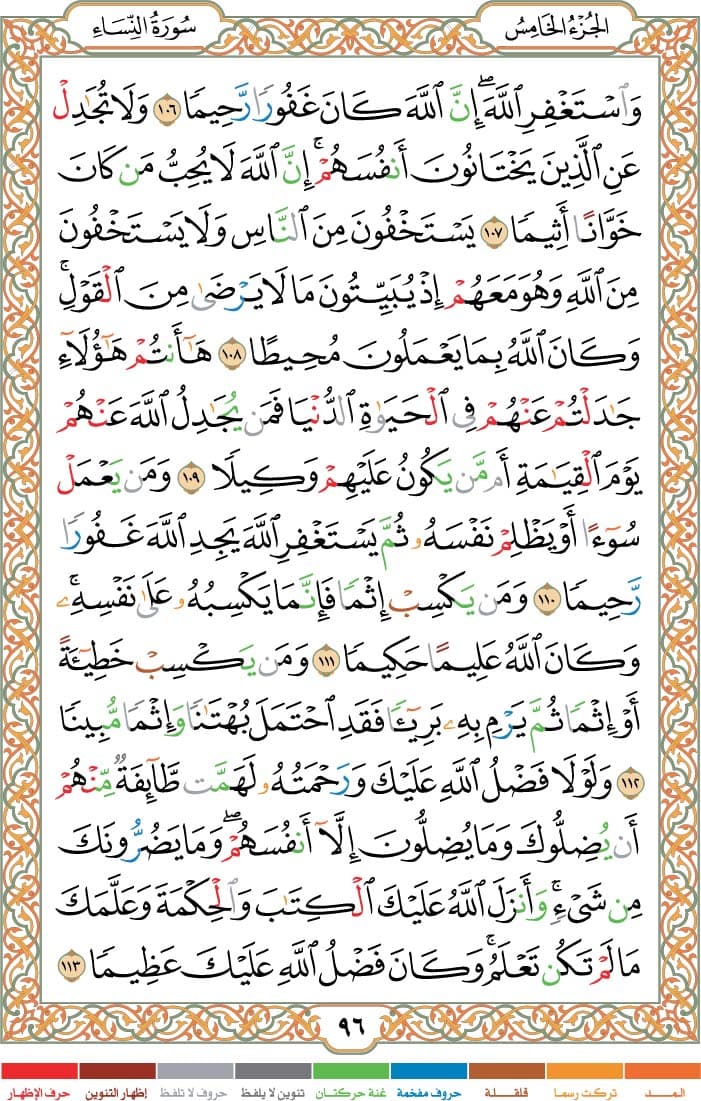 الجزء الخامس
سورة النساء
وَٱسْتَغْفِرِ ٱللَّهَ ۖ إِنَّ ٱللَّهَ كَانَ غَفُورًا رَّحِيمًا ١٠٦ وَلَا تُجَٰدِلْ
عَنِ ٱلَّذِينَ يَخْتَانُونَ أَنفُسَهُمْ ۚ إِنَّ ٱللَّهَ لَا يُحِبُّ مَن كَانَ
خَوَّانًا أَثِيمًا ١٠٧ يَسْتَخْفُونَ مِنَ ٱلنَّاسِ وَلَا يَسْتَخْفُونَ
مِنَ ٱللَّهِ وَهُوَ مَعَهُمْ إِذْ يُبَيِّتُونَ مَا لَا يَرْضَىٰ مِنَ ٱلْقَوْلِ ۚ
وَكَانَ ٱللَّهُ بِمَا يَعْمَلُونَ مُحِيطًا ١٠٨ هَٰٓأَنتُمْ هَٰٓؤُلَآءِ
جَٰدَلْتُمْ عَنْهُمْ فِى ٱلْحَيَوٰةِ ٱلدُّنْيَا فَمَن يُجَٰدِلُ ٱللَّهَ عَنْهُمْ
يَوْمَ ٱلْقِيَٰمَةِ أَم مَّن يَكُونُ عَلَيْهِمْ وَكِيلًا ١٠٩ وَمَن يَعْمَلْ
سُوٓءًا أَوْ يَظْلِمْ نَفْسَهُۥ ثُمَّ يَسْتَغْفِرِ ٱللَّهَ يَجِدِ ٱللَّهَ غَفُورًا
رَّحِيمًا ١١٠ وَمَن يَكْسِبْ إِثْمًا فَإِنَّمَا يَكْسِبُهُۥ عَلَىٰ نَفْسِهِۦ ۚ
وَكَانَ ٱللَّهُ عَلِيمًا حَكِيمًا ١١١ وَمَن يَكْسِبْ خَطِيٓـَٔةً
أَوْ إِثْمًا ثُمَّ يَرْمِ بِهِۦ بَرِيٓـًٔا فَقَدِ ٱحْتَمَلَ بُهْتَٰنًا وَإِثْمًا مُّبِينًا
١١٢ وَلَوْلَا فَضْلُ ٱللَّهِ عَلَيْكَ وَرَحْمَتُهُۥ لَهَمَّت طَّآئِفَةٌ مِّنْهُمْ
أَن يُضِلُّوكَ وَمَا يُضِلُّونَ إِلَّآ أَنفُسَهُمْ ۖ وَمَا يَضُرُّونَكَ
مِن شَىْءٍ ۚ وَأَنزَلَ ٱللَّهُ عَلَيْكَ ٱلْكِتَٰبَ وَٱلْحِكْمَةَ وَعَلَّمَكَ
مَا لَمْ تَكُن تَعْلَمُ ۚ وَكَانَ فَضْلُ ٱللَّهِ عَلَيْكَ عَظِيمًا ١١٣
٩٦
المـــد تركت رسما قلقــلة حروف مفخمة غنة حركتـان تنوين لا يلفظ حروف لا تلفظ إظهار التنوين حرف الإظهار